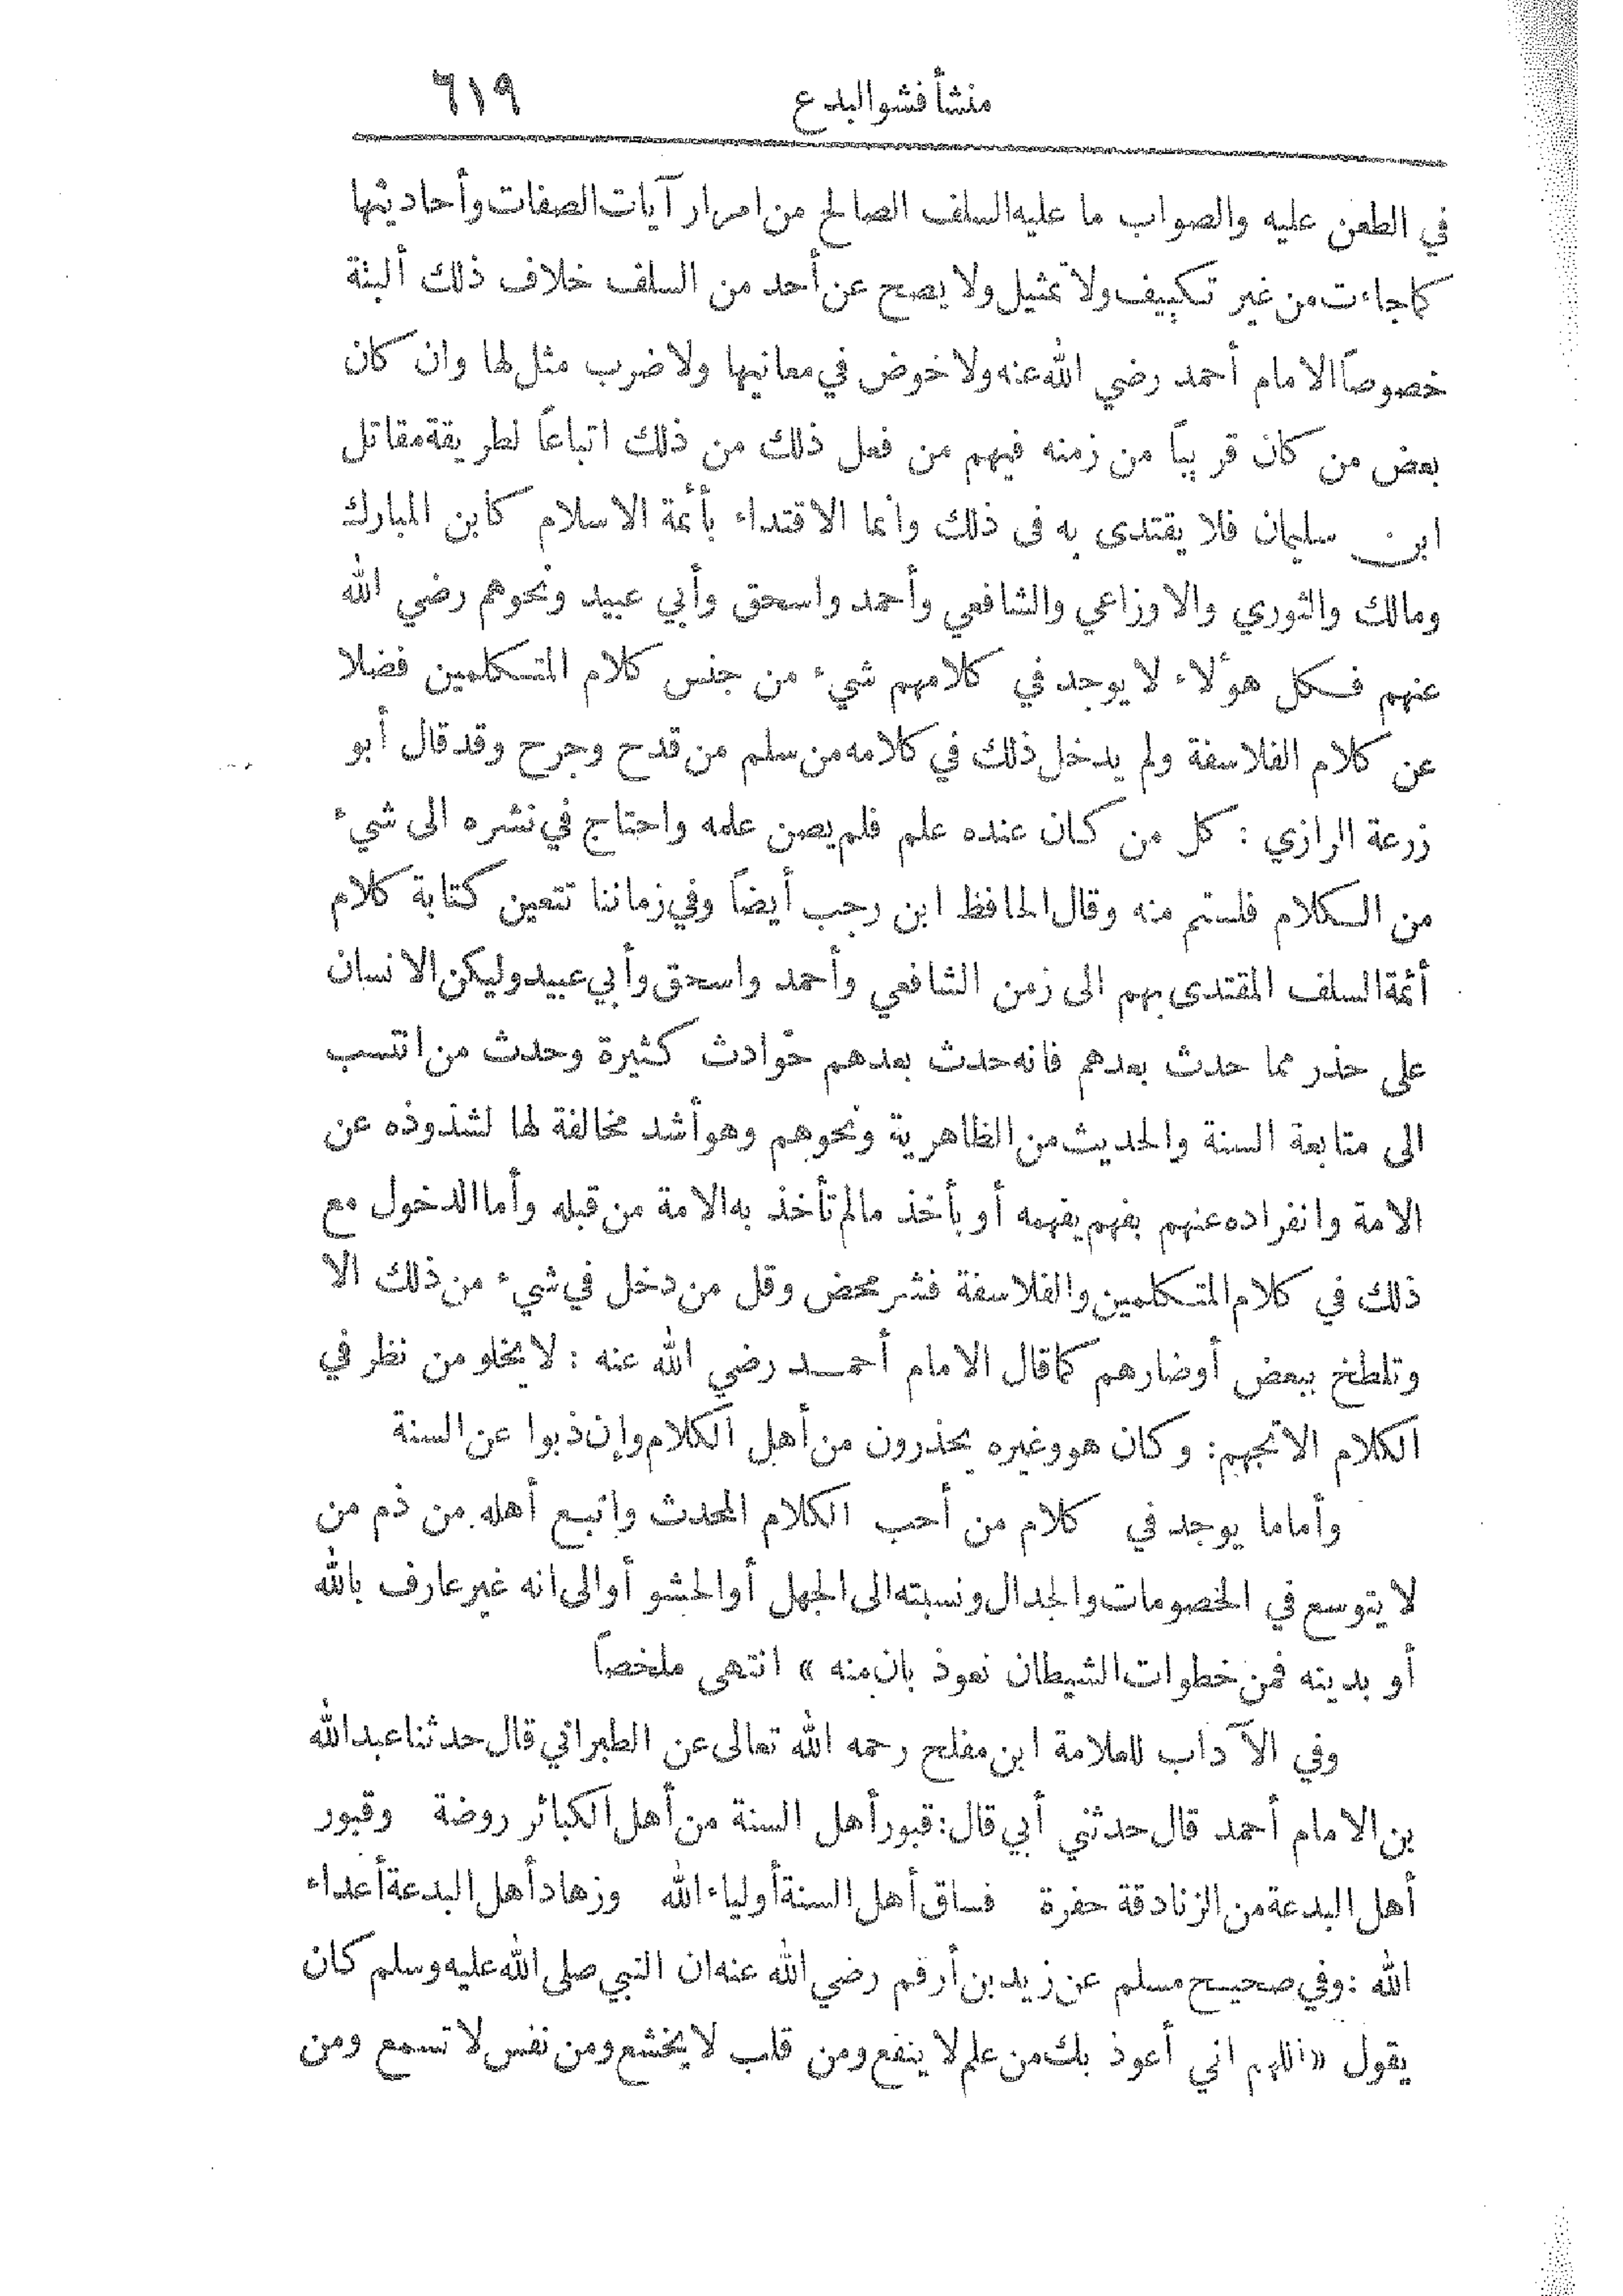 منشأ فشو البدع ٦١٩
في الطعن عليه والصواب ما عليه السلف الصالح من امرار آيات الصفات وأحاديثها
كما جاءت من غير تكييف ولا تمثيل ولا يصح عن أحد من السلف خلاف ذلك ألبتة
خصوصاً الامام أحمد رضي الله عنه ولا خوض في معانيها ولا ضرب مثل لها وان كان
بعض من كان قريباً من زمنه فيهم من فعل ذلك من ذلك اتباعاً لطريقة مقاتل
ابن سليمان فلا يقتدى به في ذلك وانما الاقتداء بأئمة الاسلام كابن المبارك
ومالك والثوري والاوزاعي والشافعي وأحمد واسحق وأبي عبيد ونحوهم رضي الله
عنهم فكل هؤلاء لا يوجد في كلامهم شيء من جنس كلام المتكلمين فضلا
عن كلام الفلاسفة ولم يدخل ذلك في كلامه من سلم من قدح وجرح وقد قال أبو
زرعة الرازي : كل من كان عنده علم فلم يصن علمه واحتاج في نشره الى شيء
من الكلام فلستم منه وقال الحافظ ابن رجب أيضاً وفي زماننا تتعين كتابة كلام
أئمة السلف المقتدى بهم الى زمن الشافعي وأحمد واسحق وأبي عبيد وليكن الانسان
على حذر مما حدث بعدهم فانه حدث بعدهم حوادث كثيرة وحدث من انتسب
الى متابعة السنة والحديث من الظاهرية ونحوهم وهو أشد مخالفة لها لشذوذه عن
الامة وانفراده عنهم بفهم يفهمه أو بأخذ مالم تأخذ به الامة من قبله وأما الدخول مع
ذلك في كلام المتكلمين والفلاسفة فشر محض وقل من دخل في شيء من ذلك الا
وتلطخ ببعض أوضارهم كما قال الامام أحمد رضي الله عنه : لا يخلو من نظر في
الكلام الا تجهم : وكان هو وغيره يحذرون من أهل الكلام وإن ذبوا عن السنة
وأما ما يوجد في كلام من أحب الكلام المحدث واتبع أهله من ذم من
لا يتوسع في الخصومات والجدال ونسبته الى الجهل أو الحشو أو الى انه غير عارف بالله
أو بدينه فمن خطوات الشيطان نعوذ بان منه » انتهى ملخصاً
وفي الآداب للعلامة ابن مفلح رحمه الله تعالى عن الطبراني قال حدثنا عبد الله
بن الامام أحمد قال حدثني أبي قال : قبور أهل السنة من أهل الكبائر روضة وقبور
أهل البدعة من الزنادقة حفرة فساق أهل السنة أولياء الله وزهاد أهل البدعة أعداء
الله : وفي صحيح مسلم عن زيد بن أرقم رضي الله عنه ان النبي صلى الله عليه وسلم كان
يقول « اللهم اني أعوذ بك من علم لا ينفع ومن قلب لا يخشع ومن نفس لا تسمع ومن